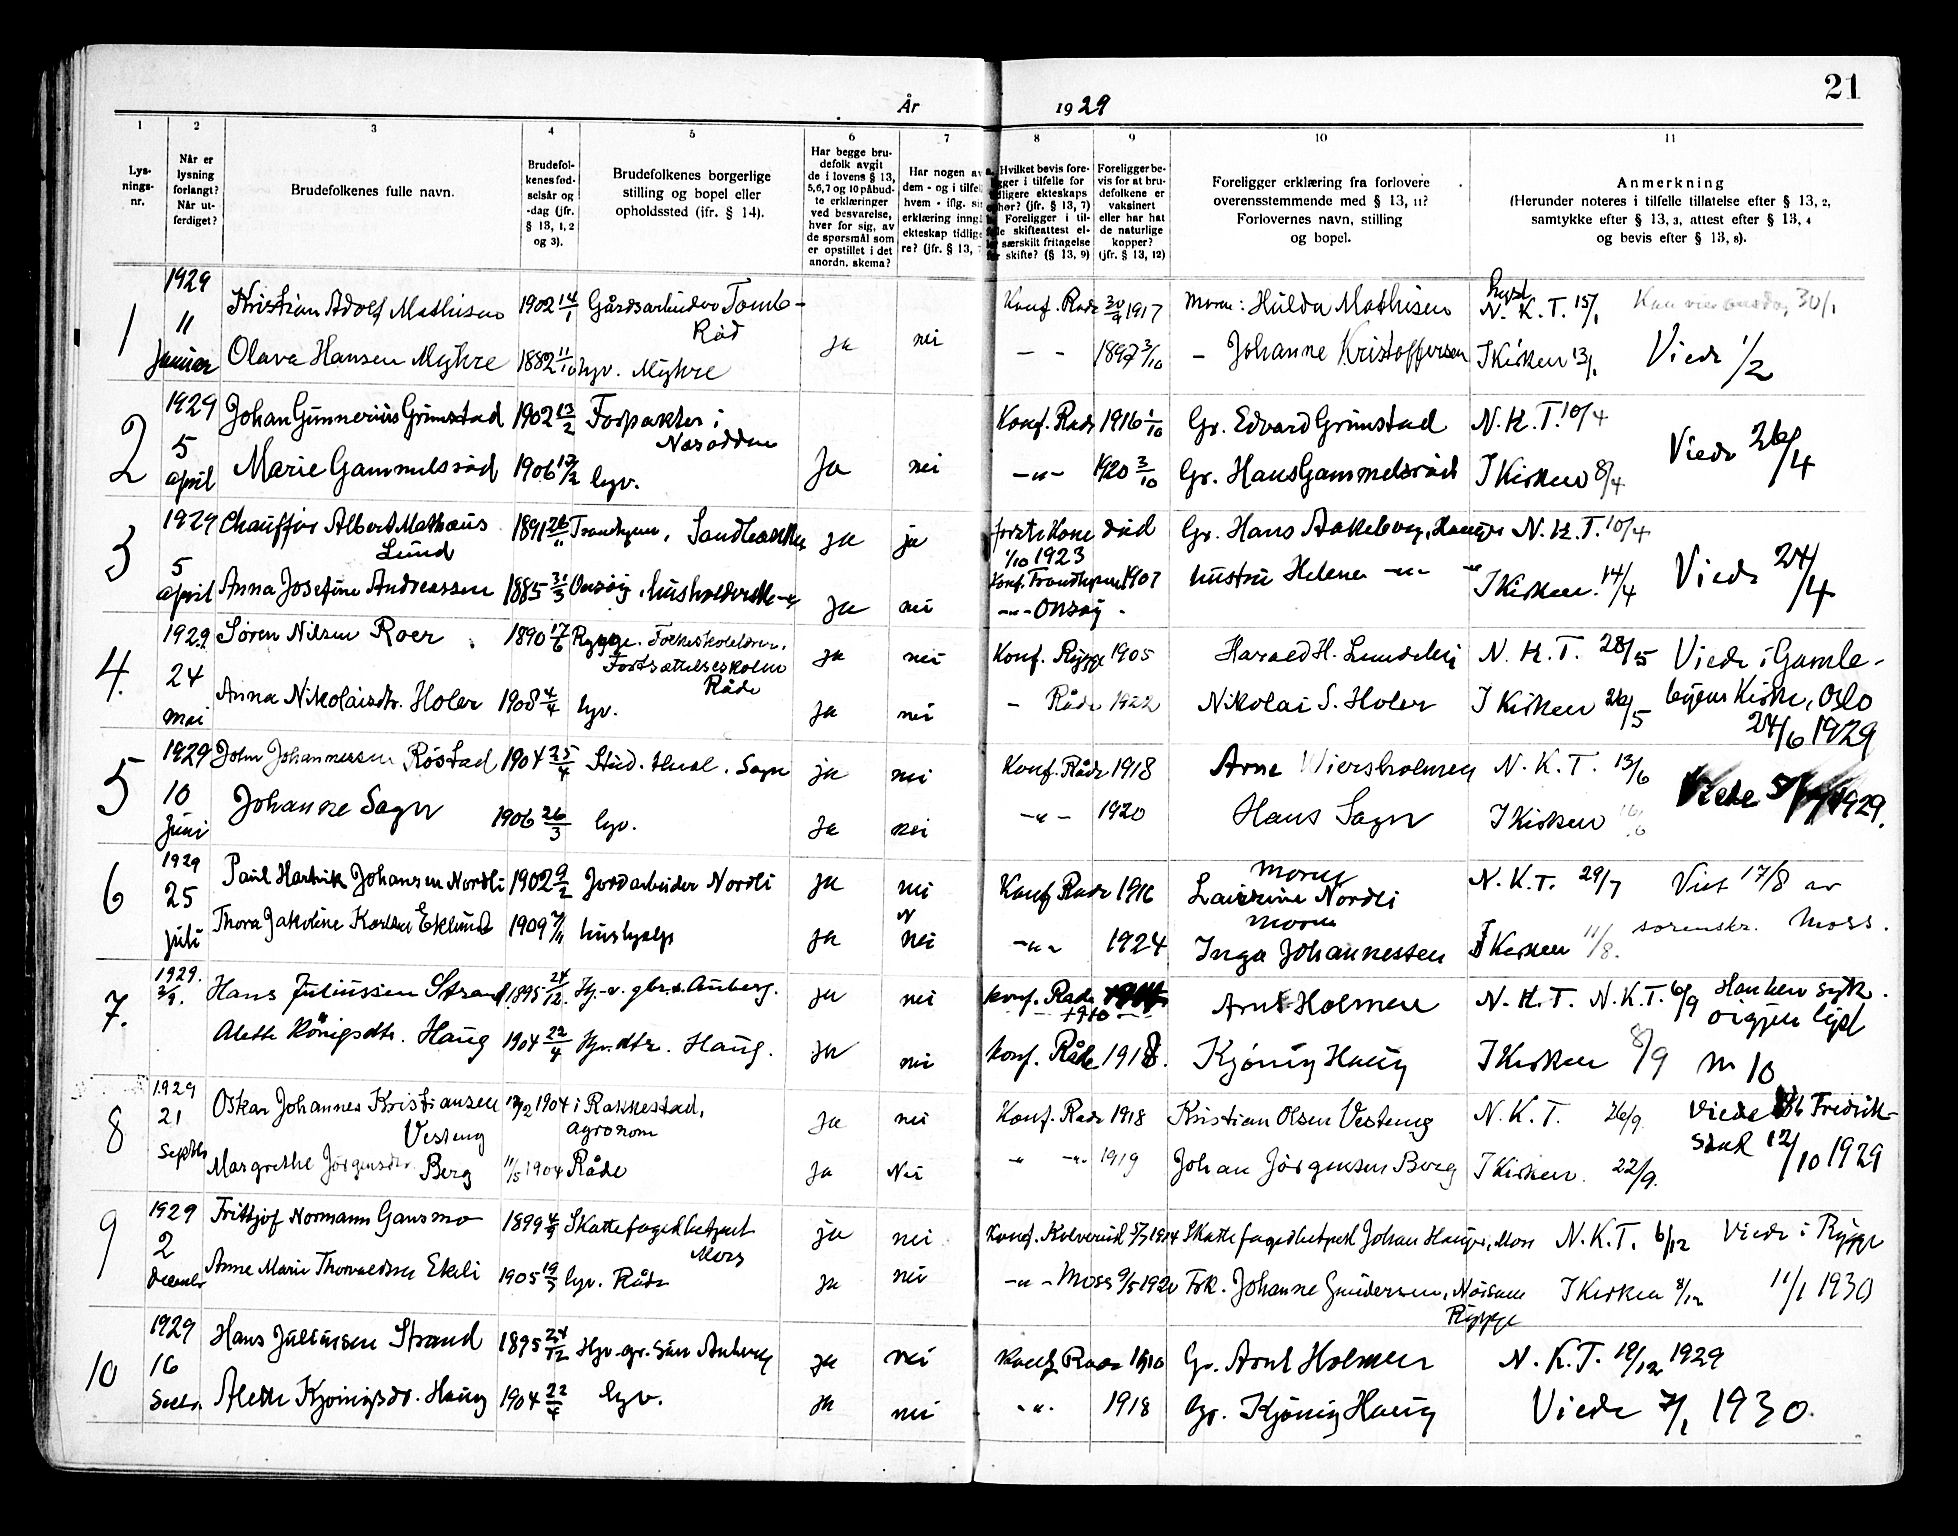 21
År 1929
1 2 3 4 5 6 7 8 9 10 11
Lys-
nings-
nr.
Når er
lysning
forlangt?
Når ut-
ferdiget?
Brudefolkenes fulle navn.
Brudefol-
kenes fød-
selsår og
-dag (jfr.
§ 13, 1, 2
og 3).
Brudefolkenes borgerlige
stilling og bopel eller
opholdssted (jfr. § 14).
Har begge bru-
defolk avgit
de i lovens § 13,
5,6,7 og 10 påbud-
te erklæringer
ved besvarelse,
hver for sig, av
de spørsmål som
er opstillet i det
anordn. skema?
Har nogen av
dem - og i tilfel
hvem - iflg. sin
erklæring inng
ekteskap tidlig
re? (jfr. § 13,
Hvilket bevis fore-
gger i tilfelle for
dligere ekteskaps
ophør? (jfr. § 13, 7)
Foreligger i til-
le skifteattest el-
særskilt fritagelse
skifte? (§ 13, 9)
Foreligger be-
vis for at bru-
defolkene er
vaksinert
eller har hat
de naturlige
kopper?
(jfr. § 13, 12)
Foreligger erklæring fra forlovere
overensstemmende med § 13, 11?
Forlovernes navn, stilling
og bopel.
Anmerkning
(Herunder noteres i tilfelle tillatelse efter § 13, 2,
samtykke efter § 13, 3, attest efter § 13, 4
og bevis efter § 13, 8).
1 1929 11 Januar
Kristian Adolf Mathisen 1902 14/1 Gårdsarbeider Tomb - Råd ja nei Konf. Rade 30/9 1917 Moren: Hulda Mathisen lyst N. K. T. 15/1 30/1
Olava Hansen Myhre 1882 11/10 hgv. Myhre - - 1897 3/10 - Johanne Kristoffersen I Kirken 13/1 Viede 1/2
2 1929 5 april
Johan Gunnerius Grimstad 1902 13/2 Forpakter i Nesodden Konf. Rade 1916 1/10 Gr. Edvard Grimstad N. K. T. 10/4
Marie Gammelsrød 1906 17/2 hgv. ja nei -"- 1920 3/10 Gr. Hans Gammelsrød I Kirken 8/4 Viede 26/4
3 1929 5 april
Chauffør Albert Mathæus Lund 1891 26/11 Trondhjem, Sandbakken ja ja første Kone død 1/10 1923 Gr. Hans Aakeberg, Hauge N. K. T. 10/4
Anna Josefine Andreassen 1885 31/3 Onsøy, husholderske ja nei Konf. Trondhjem 1907 -"- Onsøy - hustru Helene -"- I Kirken 14/4 Viede 24/4
4. 1929 24 mai
Søren Nilsen Roer 1890 17/6 Rygge. Folkeskolelærer, Fortsættelsesskolen Råde ja nei Konf. Rygge 1905 Harald H. Lundeby N. K. T. 28/5 Viede i Gamle-
Anna Nikolaisdtr. Holer 1908 4/4 hgv. ja nei - Råde 1922 Nikolai S. Holer I Kirken 26/5 byens Kirke, Oslo
24/6 1929
5 1929 10 Juni
John Johannessen Röstad 1904 25/4 Stud. theol. Sogn ja nei Konf. Råde 1918 Arne Wiersholmen N. K. T. 13/6
Johanne Sogn 1906 26/3 hgv. ja nei -"- 1920 Hans Sogn I Kirken Viede 1929.
6 1929 25 juli
Paul Hartvik Johansen Nordli 1902 9/2 Jordarbeider Nordli ja nei Konf Rade 1916 moren Laurine Nordli N. K. T. 29/7 Viet 17/8 av
Thora Jakobine Karlsen Eklund 1909 7/11 hushjelp ja nei -"- 1924 moren Inga Johannessen I Kirken 11/8. sorenskr. Moss.
7. 1929. 3/9.
Hans Juliussen Strand 1895 24/12. Hj.-v. gbr.s. Auberg. ja nei Konf. Rade 1910 Arnt Holmen N. K. T. N. K. T. 6/9
Alette Königsdtr. Haug 1904 22/4 Hjv. dtr. Haug. ja nei Konf. Råde 1918. Kjönig Haug I Kirken 8/9 nr 10
8 1929 21 Septbr
Oskar Johannes Kristiansen Vesteng 12/2 1904 i Rakkestad, agronom ja nei Konf. Rade 1918 Kristian Olsen Vesteng N. K. T. 26/9 Viede Fredrik-
Margrethe Jørgensdtr. Berg 11/5 1904 Råde ja Nei " -"- 1919 Johan Jörgensen Berg I Kirken. 22/9. stad 12/10 1929
9 1929 2 Decembr
Frithjof Normann Gansmo 1899 4/9 Skattefogedbetjent Moss ja nei Konf. Kolvereid 5/7 1914 Skattefogedbetjent Johan Hauge, Moss N. K. T. 6/12 Viede i Rygge
Anne Marie Thorvaldsen Ekeli 1905 19/3 hgv. Råde ja nei -"- Moss 9/5 1920 Frk. Johanne Gundersen, Rygge I Kirken 8/12 11/1 1930
10 1929 16
Hans Juliussen Strand 1895 24/12 Hjv. gr. søn Auberg ja nei Konf Rade 1910 Gr. Arnt Holmen N. K. T. 19/12 1929
Alette Kjönigsdr. Haug 1904 22/4 hgv. ja nei -"- 1918 Gr. Kjönig Haug Viede 7/1 1930.